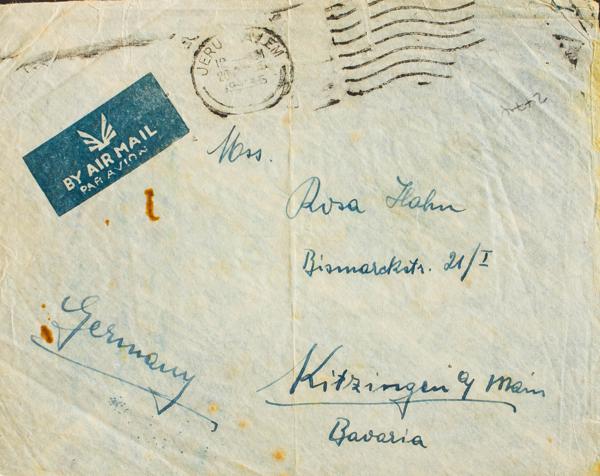 JERUSALEM
BY AIR MAIL
PAR AVION
Mss.
Rosa Hahn
Bismarckstr. 21/I
Germany
Kitzingen a/ Main
Bavaria